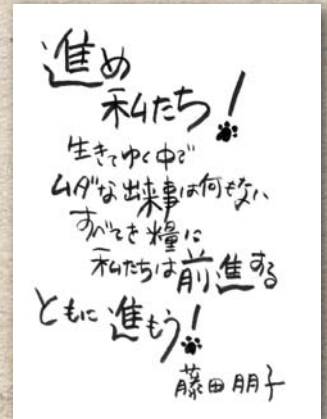 進め
私たち!
生きてゆく中で
ムダな出来事は何もない
すべてを糧に
私たちは前進する
ともに進もう!
藤田朋子